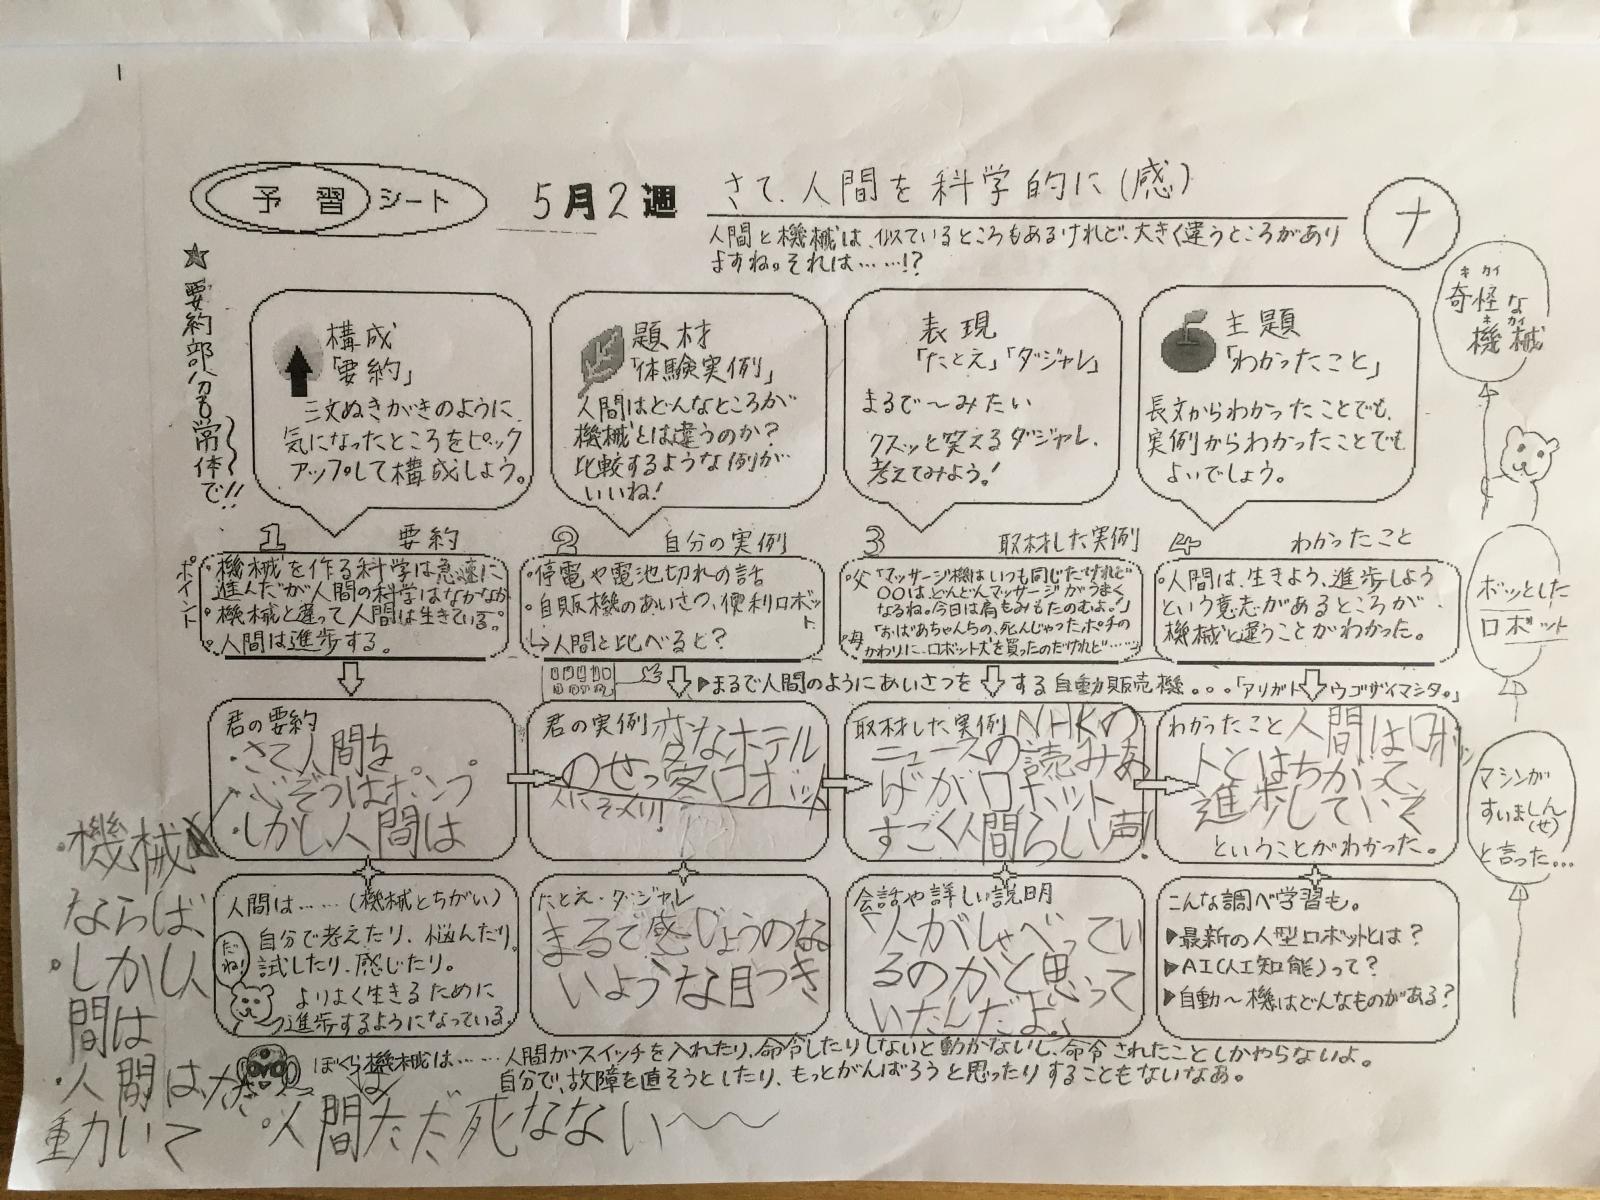 予習シート
5月2週
さて、人間を科学的に(感)
ナ
人間と機械は、似ているところもあるけれど、大きく違うところがあり
ますね。それは……!?
★要約部分も常体で!!
構成
「要約」
三文ぬきがきのように
気になったところをピック
アップして構成しよう。
題材
「体験実例」
人間はどんなところが
機械とは違うのか?
比較するような例が
いいね!
表現
「たとえ」「ダジャレ」
まるで〜みたい
クスッと笑えるダジャレ、
考えてみよう!
主題
「わかったこと」
長文からわかったことでも、
実例からわかったことでも
よいでしょう。
キカイ
奇怪な
キカイ
機械
ボッとした
ロボット
マシンが
すいましん
(せ)
と言った…
ポイント
1 要約
・機械を作る科学は急速に
進んだが人間の科学はなかなか
・機械と違って人間は生きている。
・人間は進歩する。
2 自分の実例
・停電や電池切れの話
・自販機のあいさつ、便利ロボット
→人間と比べると?
3 取材した実例
・父「マッサージ機はいつも同じだけれど
○○はどんどんマッサージがうまく
なるね。今日は肩もみもたのむよ。」
・母「おばあちゃんちの、死んじゃったポチの
かわりに、ロボット犬を買ったのだけれど……
4 わかったこと
・人間は、生きよう、進歩しよう
という意志があるところが
機械と違うことがわかった。
▶まるで人間のようにあいさつをする自動販売機。。。「アリガトウゴザイマシタ。」
君の要約
・さて人間を
・しんぞうはポンプ
・しかし人間は
君の実例
変なホテル
のせっ客ロボット
人にそメリ!
取材した実例
NHKの
ニュースの読みあ
げがロボット
すごく人間らしい声!
わかったこと
人間はロボッ
トとはちがって、
進歩していく
ということがわかった。
人間は……(機械とちがい)
自分で考えたり、悩んだり、
試したり、感じたり。
よりよく生きるために
進歩するようになっている。
だね!
たとえ・ダジャレ
まるで感じょうのな
いような目つき
会話や詳しい説明
「人がしゃべってい
るのかと思って
いたんだよ。」
こんな調べ学習も。
▶最新の人型ロボットとは?
▶AI(人工知能)って?
▶自動〜機はどんなものがある?
ぼくら機械は……人間がスイッチを入れたり、命令したりしないと動かないし、命令されたことしかやらないよ。
自分で、故障を直そうとしたり、もっとがんばろうと思ったりすることもないなあ。
・機械
ならば
・しかし人
間は
・人間は、ただ
動いて
・人間はただ死なない〜〜